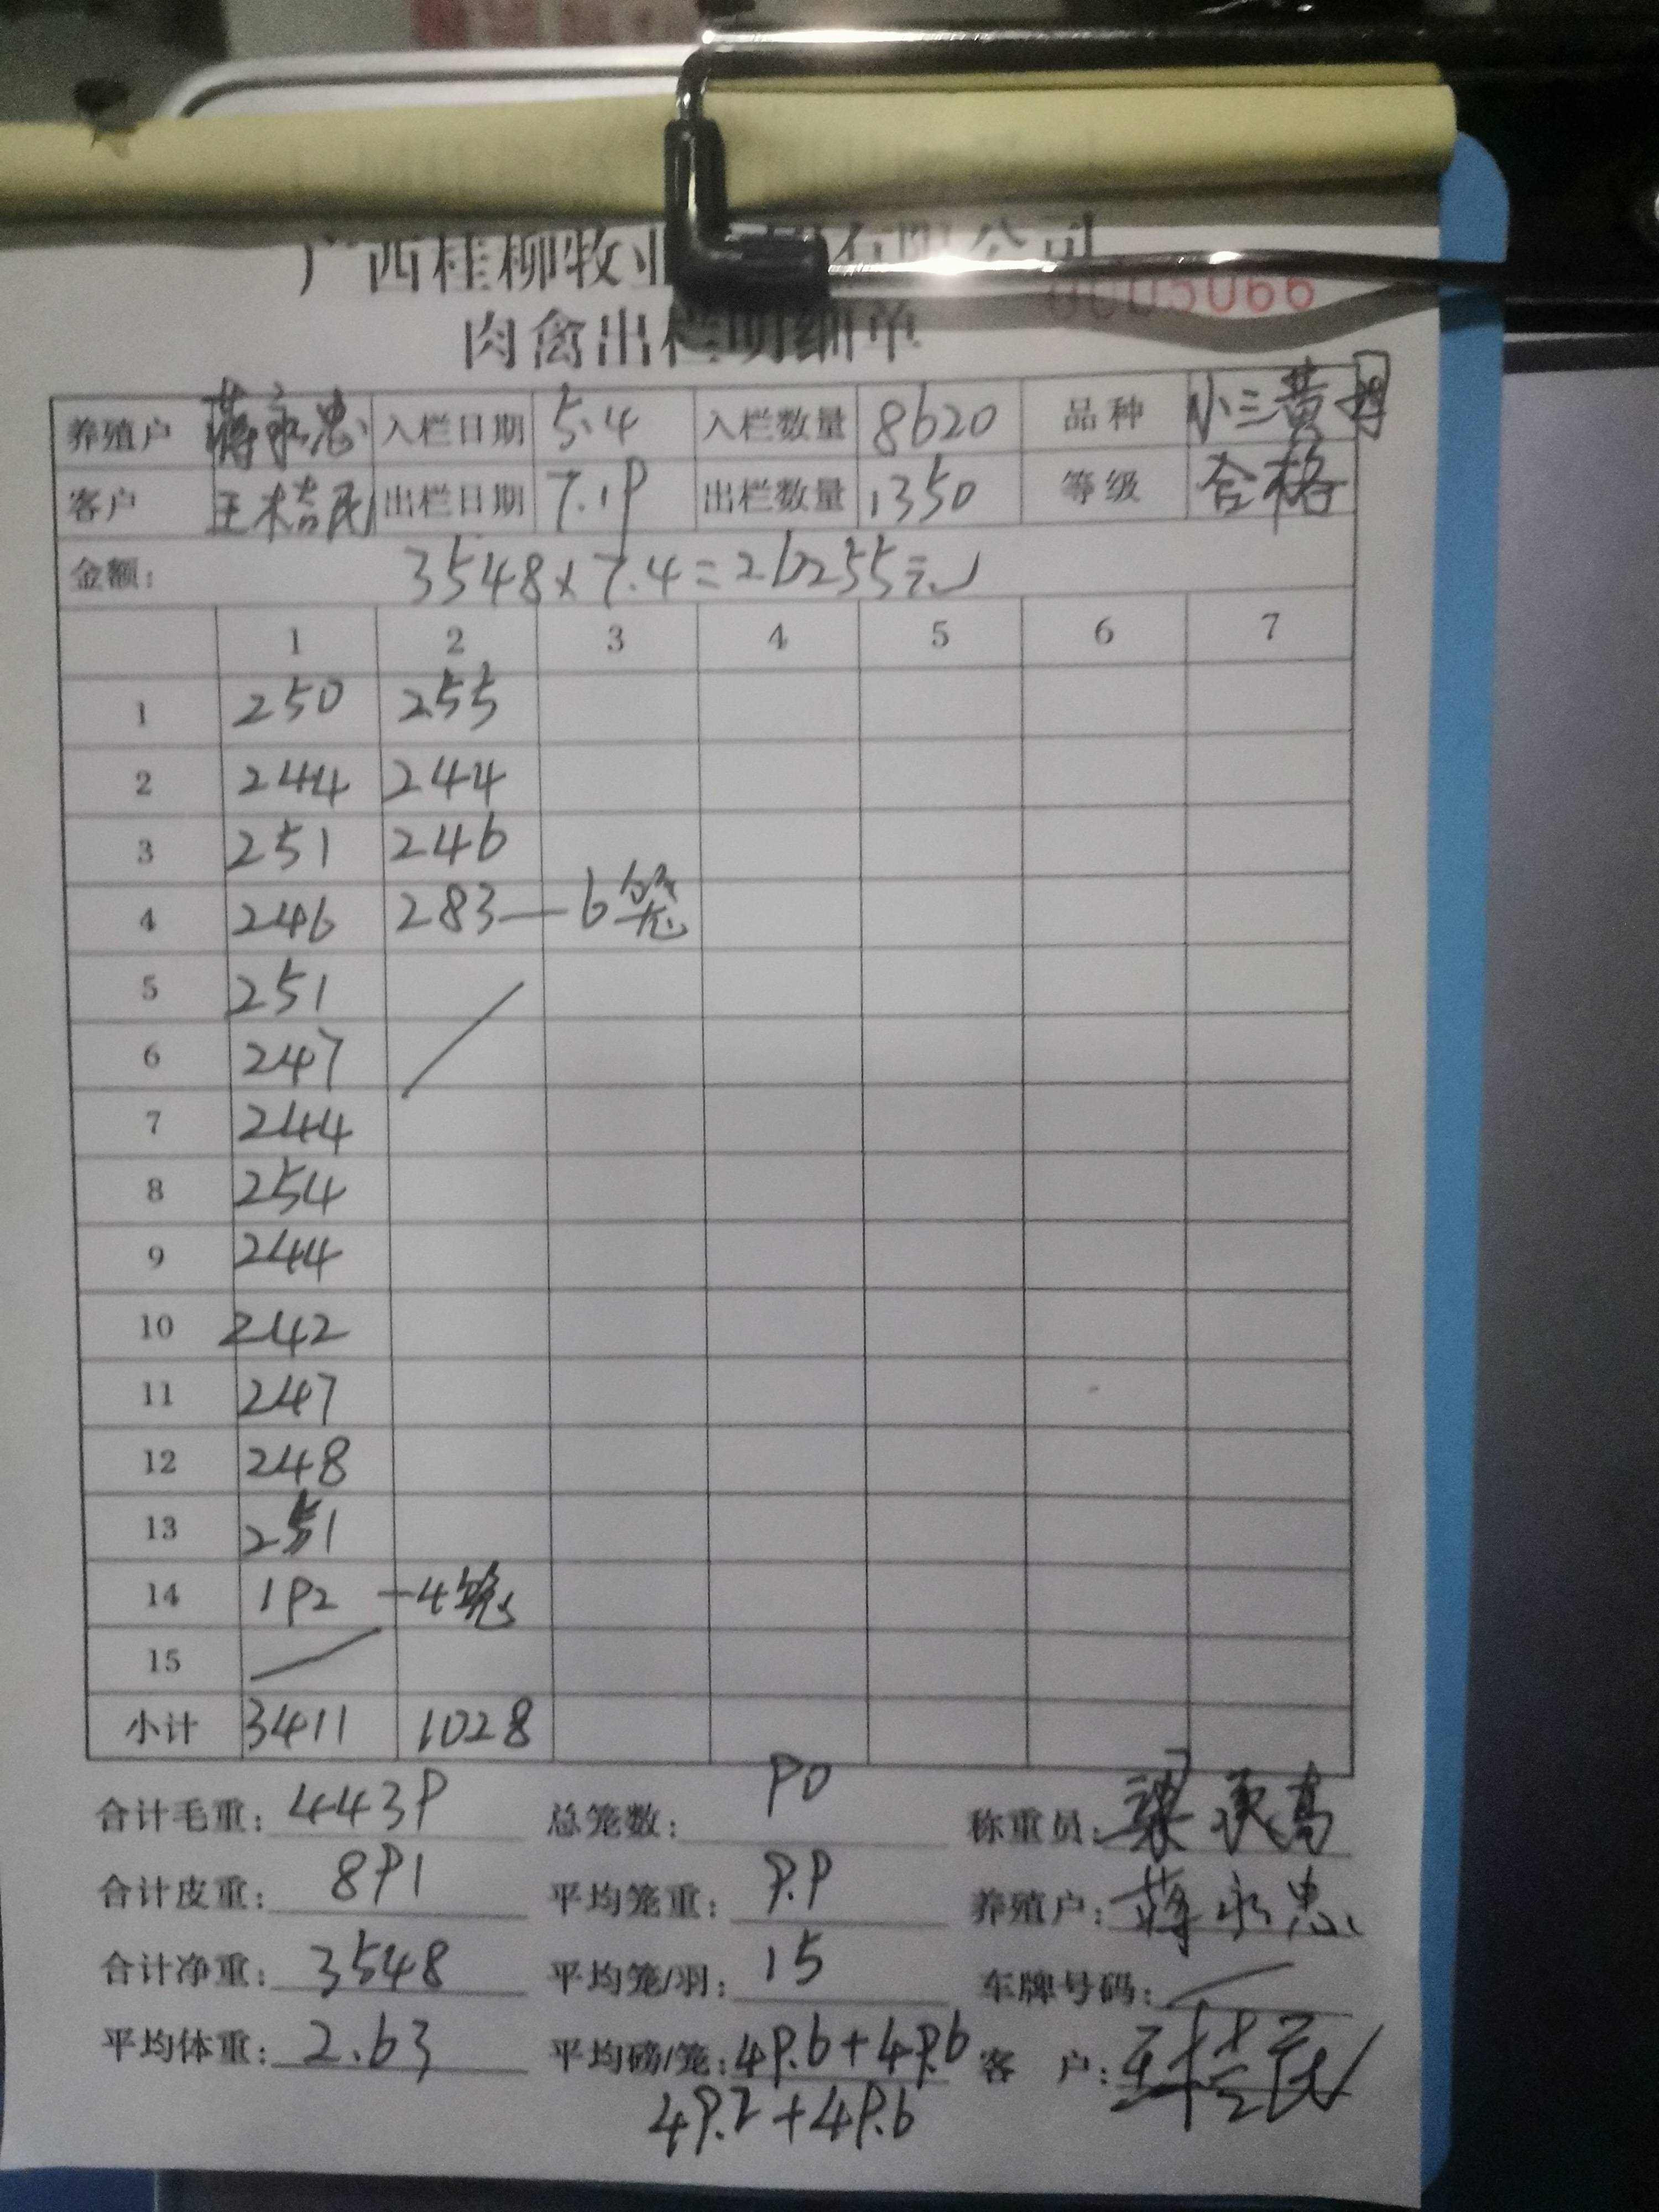 广西桂柳牧业 有限公司
0005066
肉禽出栏明细单
养殖户 蒋永忠 入栏日期 5.4 入栏数量 8620 品种 小三黄
客户 王桔民 出栏日期 7.19 出栏数量 1350 等级 合格
金额: 3548×7.4=26255元
1 2 3 4 5 6 7
1 250 255
2 244 244
3 251 246
4 246 283—6笼
5 251
6 247
7 244
8 254
9 244
10 242
11 247
12 248
13 251
14 192 —4笼
15
小计 3411 1028
合计毛重: 4439 总笼数: 90 称重员: 梁承高
合计皮重: 891 平均笼重: 9.9 养殖户: 蒋永忠
合计净重: 3548 平均笼/羽: 15 车牌号码:
平均体重: 2.63 平均磅/笼: 49.6+49.6 客 户: 王桔民
49.2+49.6